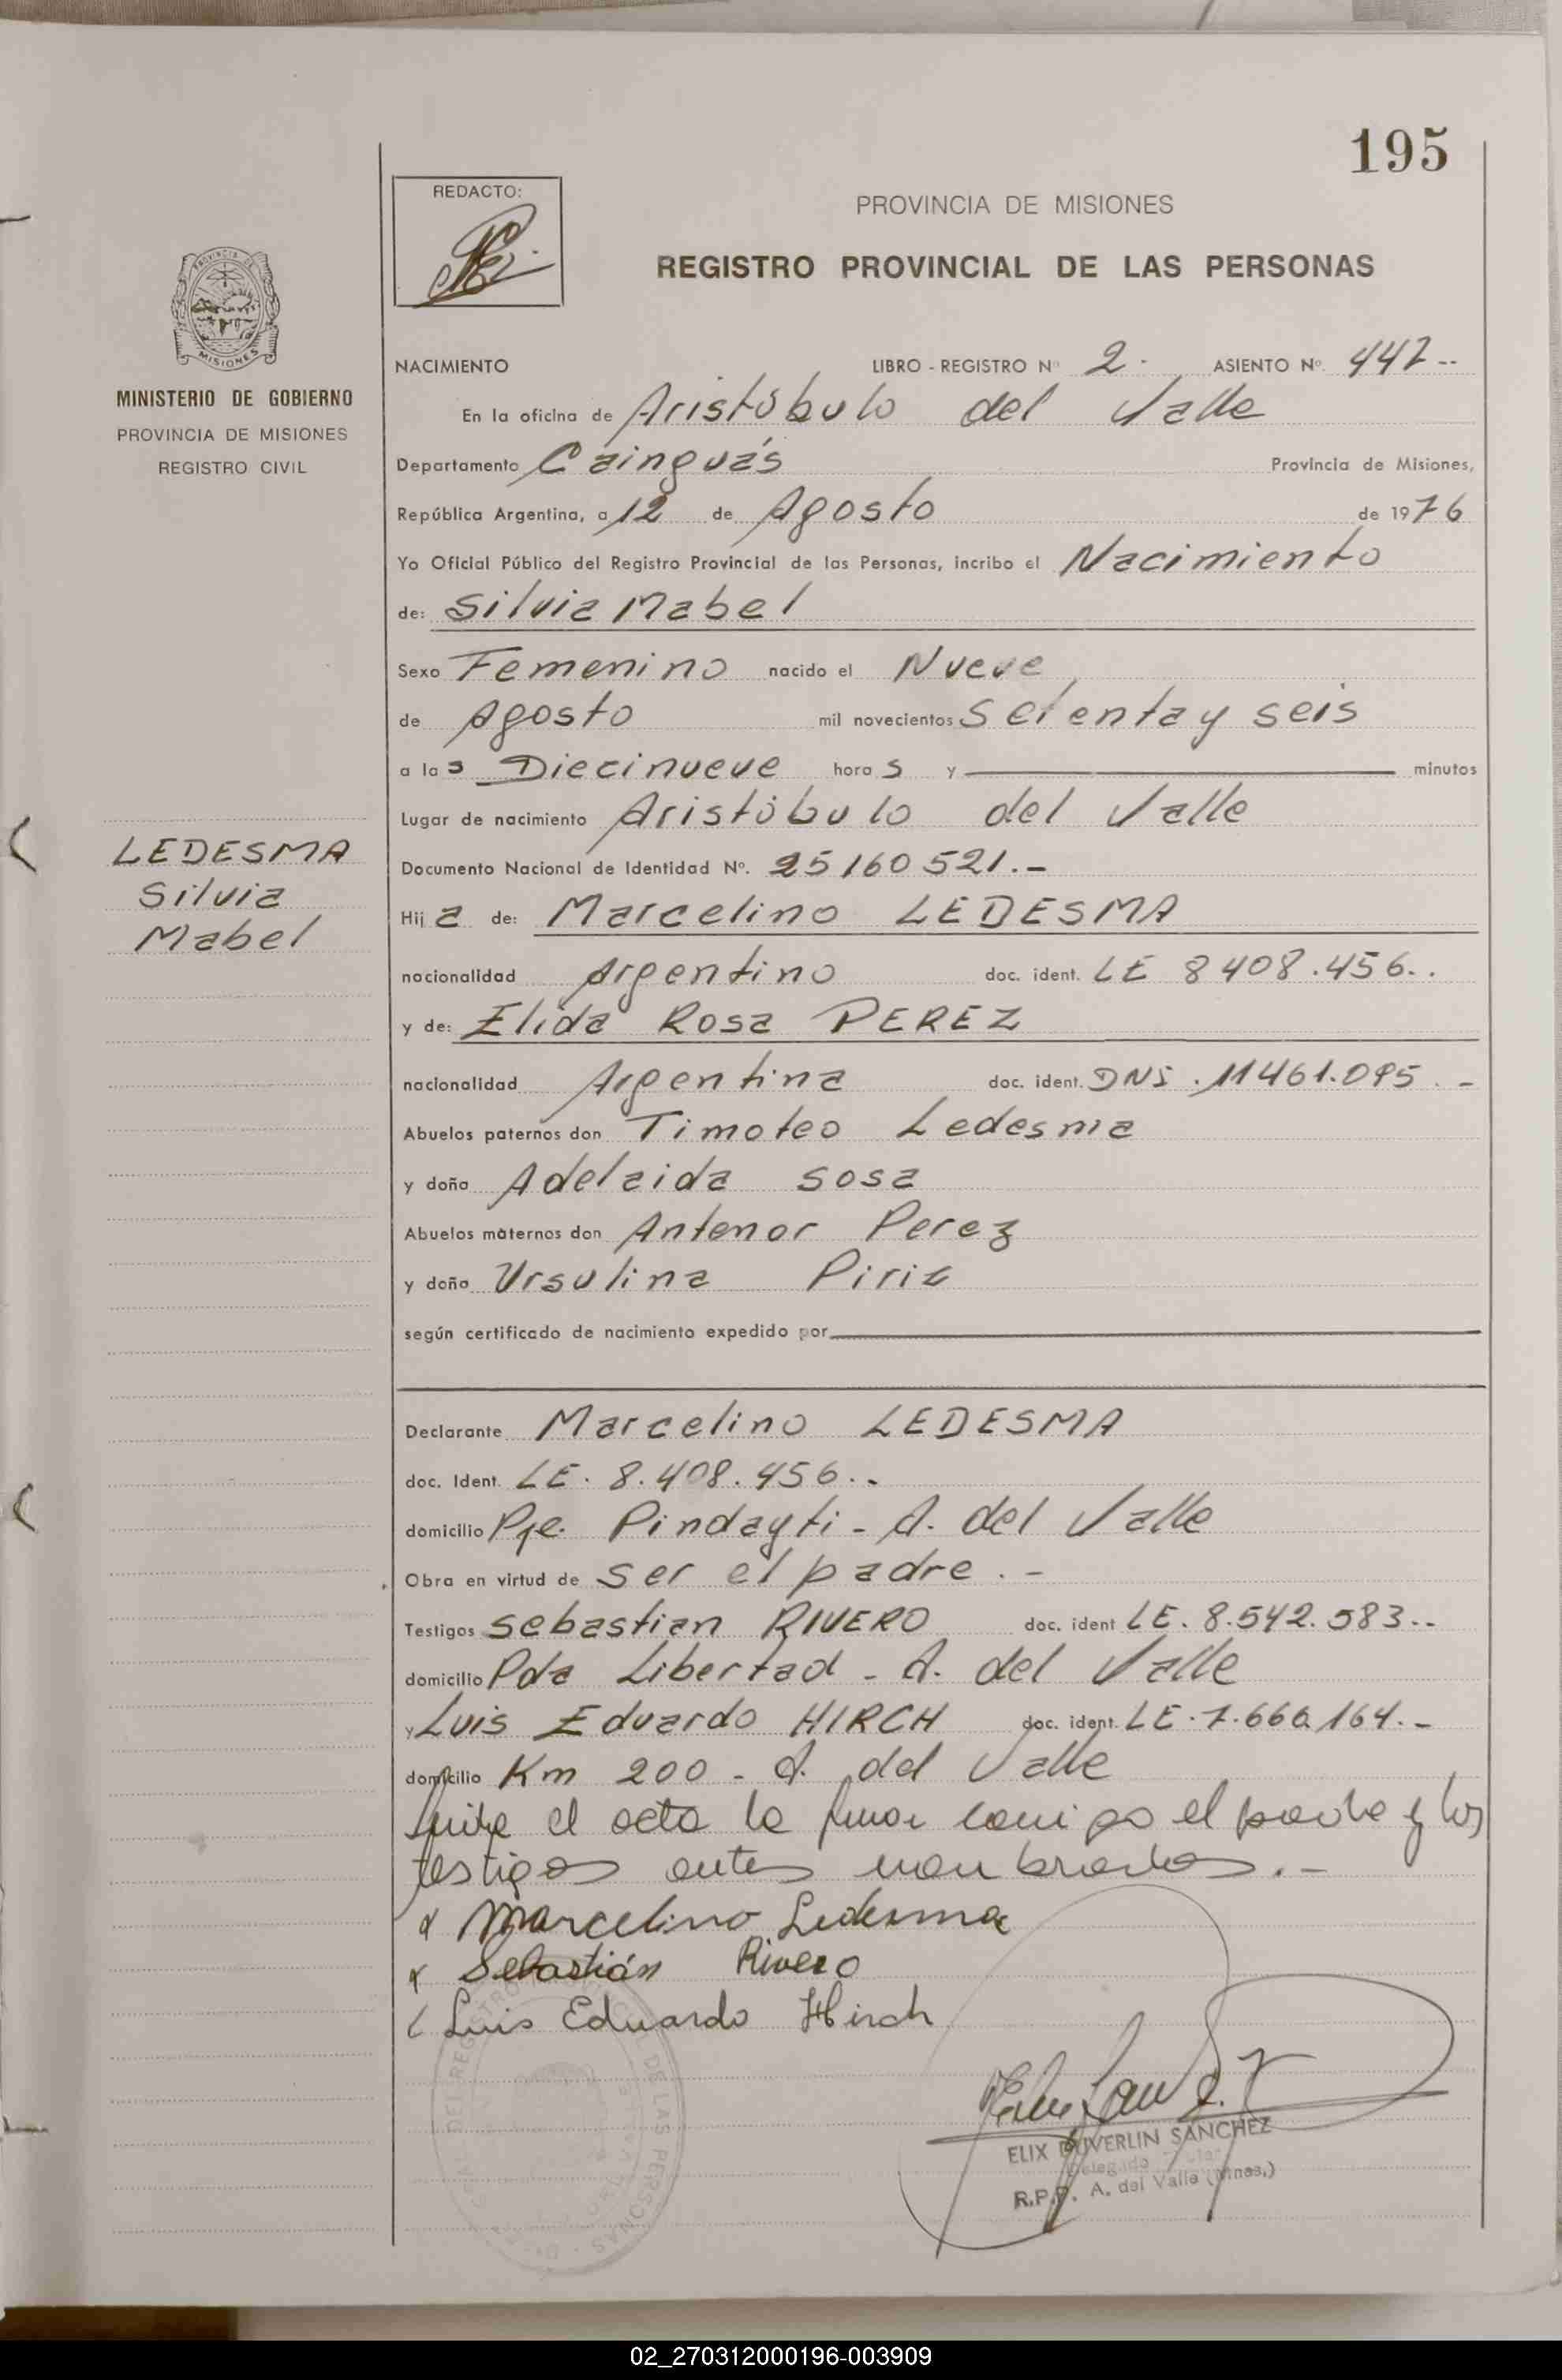 195
REDACTO:
PROVINCIA DE MISIONES
REGISTRO PROVINCIAL DE LAS PERSONAS
MISIONES
MINISTERIO DE GOBIERNO
PROVINCIA DE MISIONES
REGISTRO CIVIL
LEDESMA
Silvia
Mabel
NACIMIENTO LIBRO - REGISTRO Nº 2. ASIENTO Nº. 447--
En la oficina de Aristóbulo del Valle
Departamento Cainguás Provincia de Misiones,
República Argentina, a 12 de Agosto de 1976
Yo Oficial Público del Registro Provincial de las Personas, incribo el Nacimiento
de: Silvia Mabel
Sexo Femenino nacido el Nueve
de Agosto mil novecientos Setenta y seis
a las Diecinueve horas y minutos
Lugar de nacimiento Aristóbulo del Valle
Documento Nacional de Identidad Nº. 25160521.-
Hija de: Marcelino LEDESMA
nacionalidad Argentino doc. ident. LE 8408.456..
y de: Elida Rosa PEREZ
nacionalidad Argentina doc. ident. DNI. 11461.095.-
Abuelos paternos don Timoteo Ledesma
y doña Adelaida Sosa
Abuelos maternos don Antenor Perez
y doña Ursulina Piriz
según certificado de nacimiento expedido por
Declarante Marcelino LEDESMA
doc. Ident. LE. 8.408.456..
domicilio Pje. Pindayti - A. del Valle
Obra en virtud de ser el padre.-
Testigos Sebastian RIVERO doc. ident LE. 8.542.583..
domicilio Pda Libertad - A. del Valle
y Luis Eduardo HIRCH doc. ident. LE. 7.660.164.-
domicilio Km 200 - A. del Valle
el acta la firman conmigo el padre y los
testigos antes nombrados.-
x Marcelino Ledesma
x Sebastián Rivero
Luis Eduardo Hirch
ELIX DUVERLIN SANCHEZ
Delegado
R.P.P. A. del Valle (Mnes.)
02_270312000196-003909